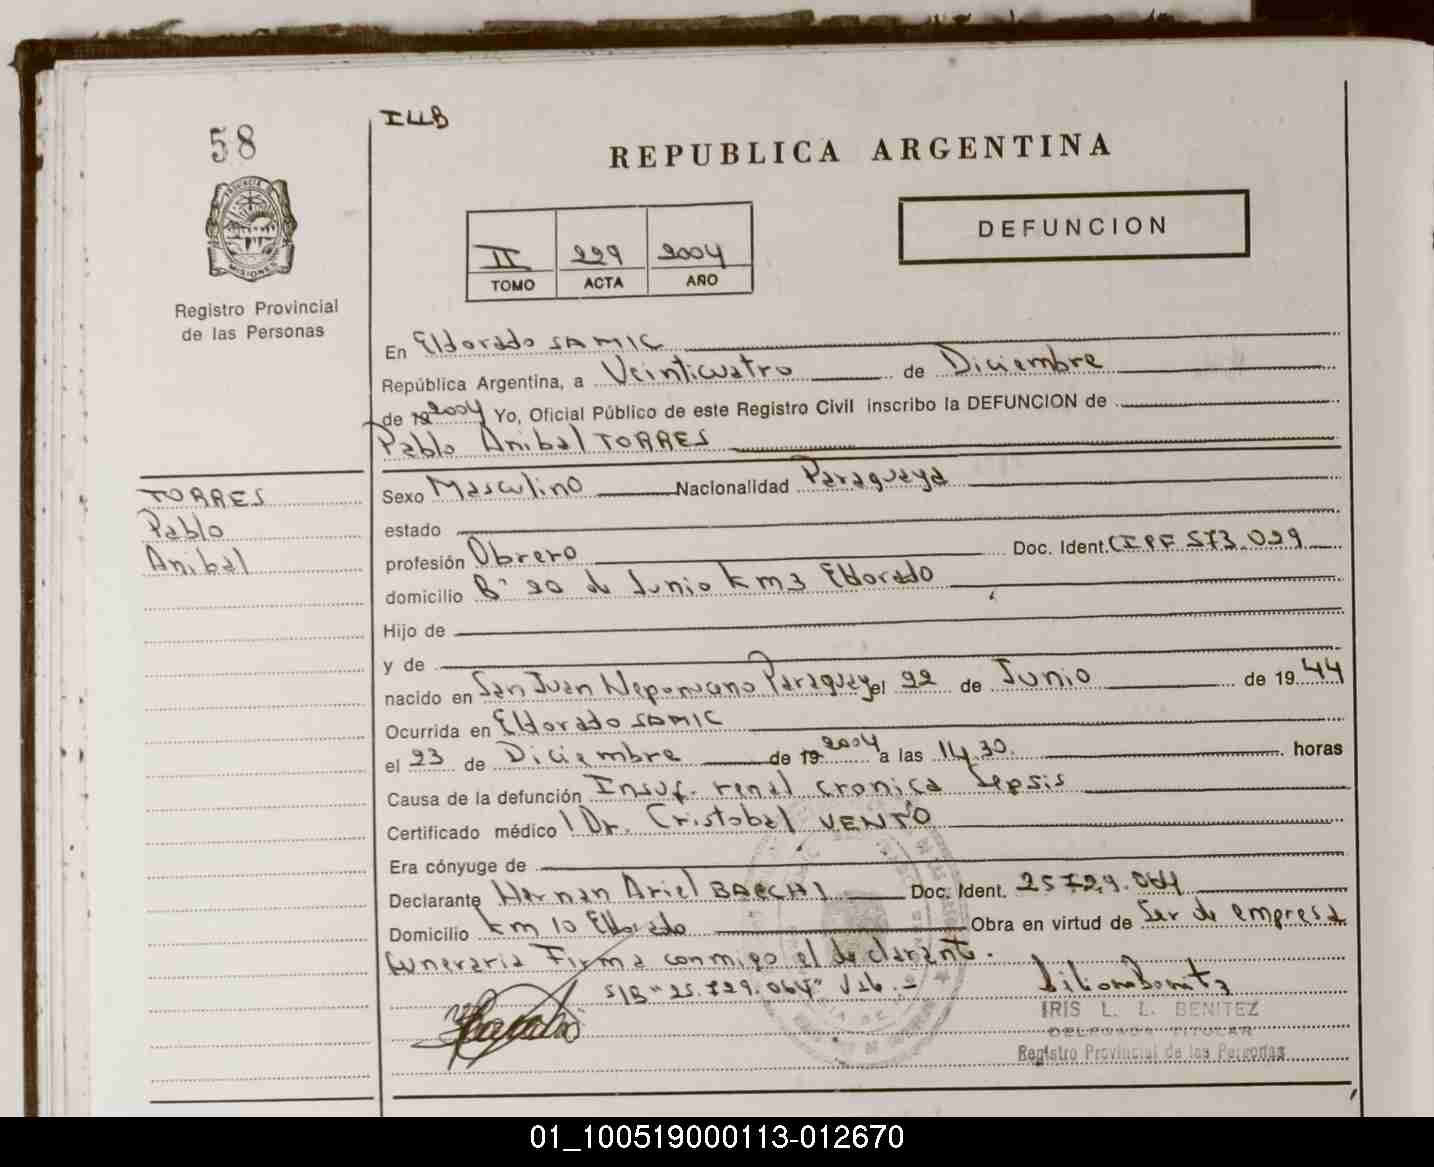 58
ILLB
REPUBLICA ARGENTINA
DEFUNCION
II 229 2004
TOMO ACTA AÑO
PROVINCIA DE
MISIONES
Registro Provincial
de las Personas
En Eldorado SAMIC
República Argentina, a Veinticuatro de Diciembre
de 19 2004 Yo, Oficial Público de este Registro Civil inscribo la DEFUNCION de
Pablo Anibal TORRES
TORRES
Pablo
Anibal
Sexo Masculino Nacionalidad Paraguaya
estado
profesión Obrero Doc. Ident. CIPF 573.029
domicilio B° 20 de Junio km 3 Eldorado
Hijo de
y de
nacido en San Juan Nepomuceno Paraguay el 22 de Junio de 19 44
Ocurrida en Eldorado SAMIC
el 23 de Diciembre de 19 2004 a las 14,30. horas
Causa de la defunción Insuf. renal cronica Sepsis
Certificado médico Dr. Cristobal VENTO
Era cónyuge de
Declarante Hernan Ariel BAECHI Doc. Ident. 25729.064
Domicilio km 10 Eldorado Obra en virtud de Ser de empresa
funeraria Firma conmigo el declarante.
S/B "25.729.064" Vale.-
IRIS L. L. BENITEZ
DELEGADA TITULAR
Registro Provincial de las Personas
01_100519000113-012670